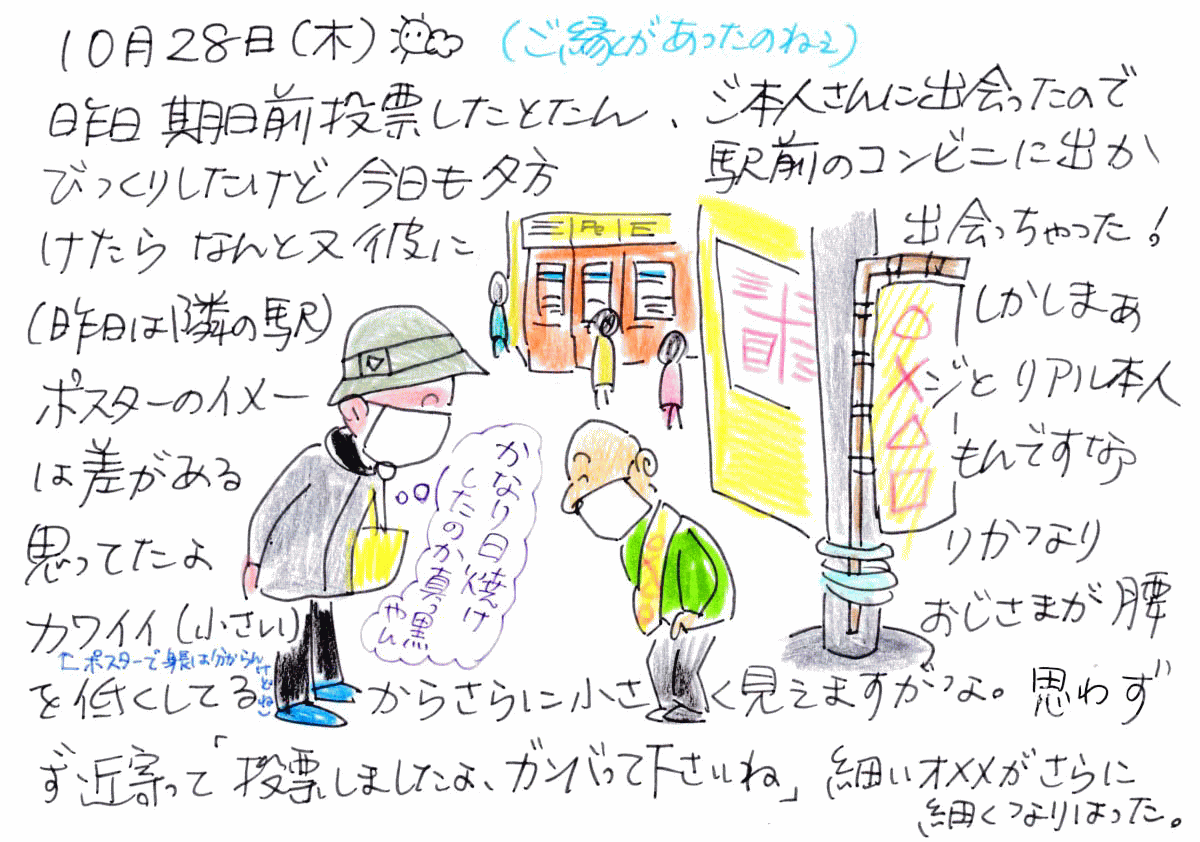 10月28日(木)
(ご縁があったのねぇ)
昨日期日前投票したとたん、ご本人さんに出会ったので
びっくりしたけど今日も夕方 駅前のコンビニに出か
けたら なんと又彼に 出会っちゃった!
(昨日は隣の駅) しかしまぁ
ポスターのイメージと リアル本人
は差がある もんですなァ
思ってたよりかなり
カワイイ(小さい) おじさまが腰
←ポスターで身長は分からんけどね
を低くしてるからさらに小さく見えますがな。思わず
ず近寄って「投票しましたよ、ガンバって下さいね」細いオメメがさらに
細くなりはった。
かなり日焼け
したのか真っ黒
やん
○
×
△
□